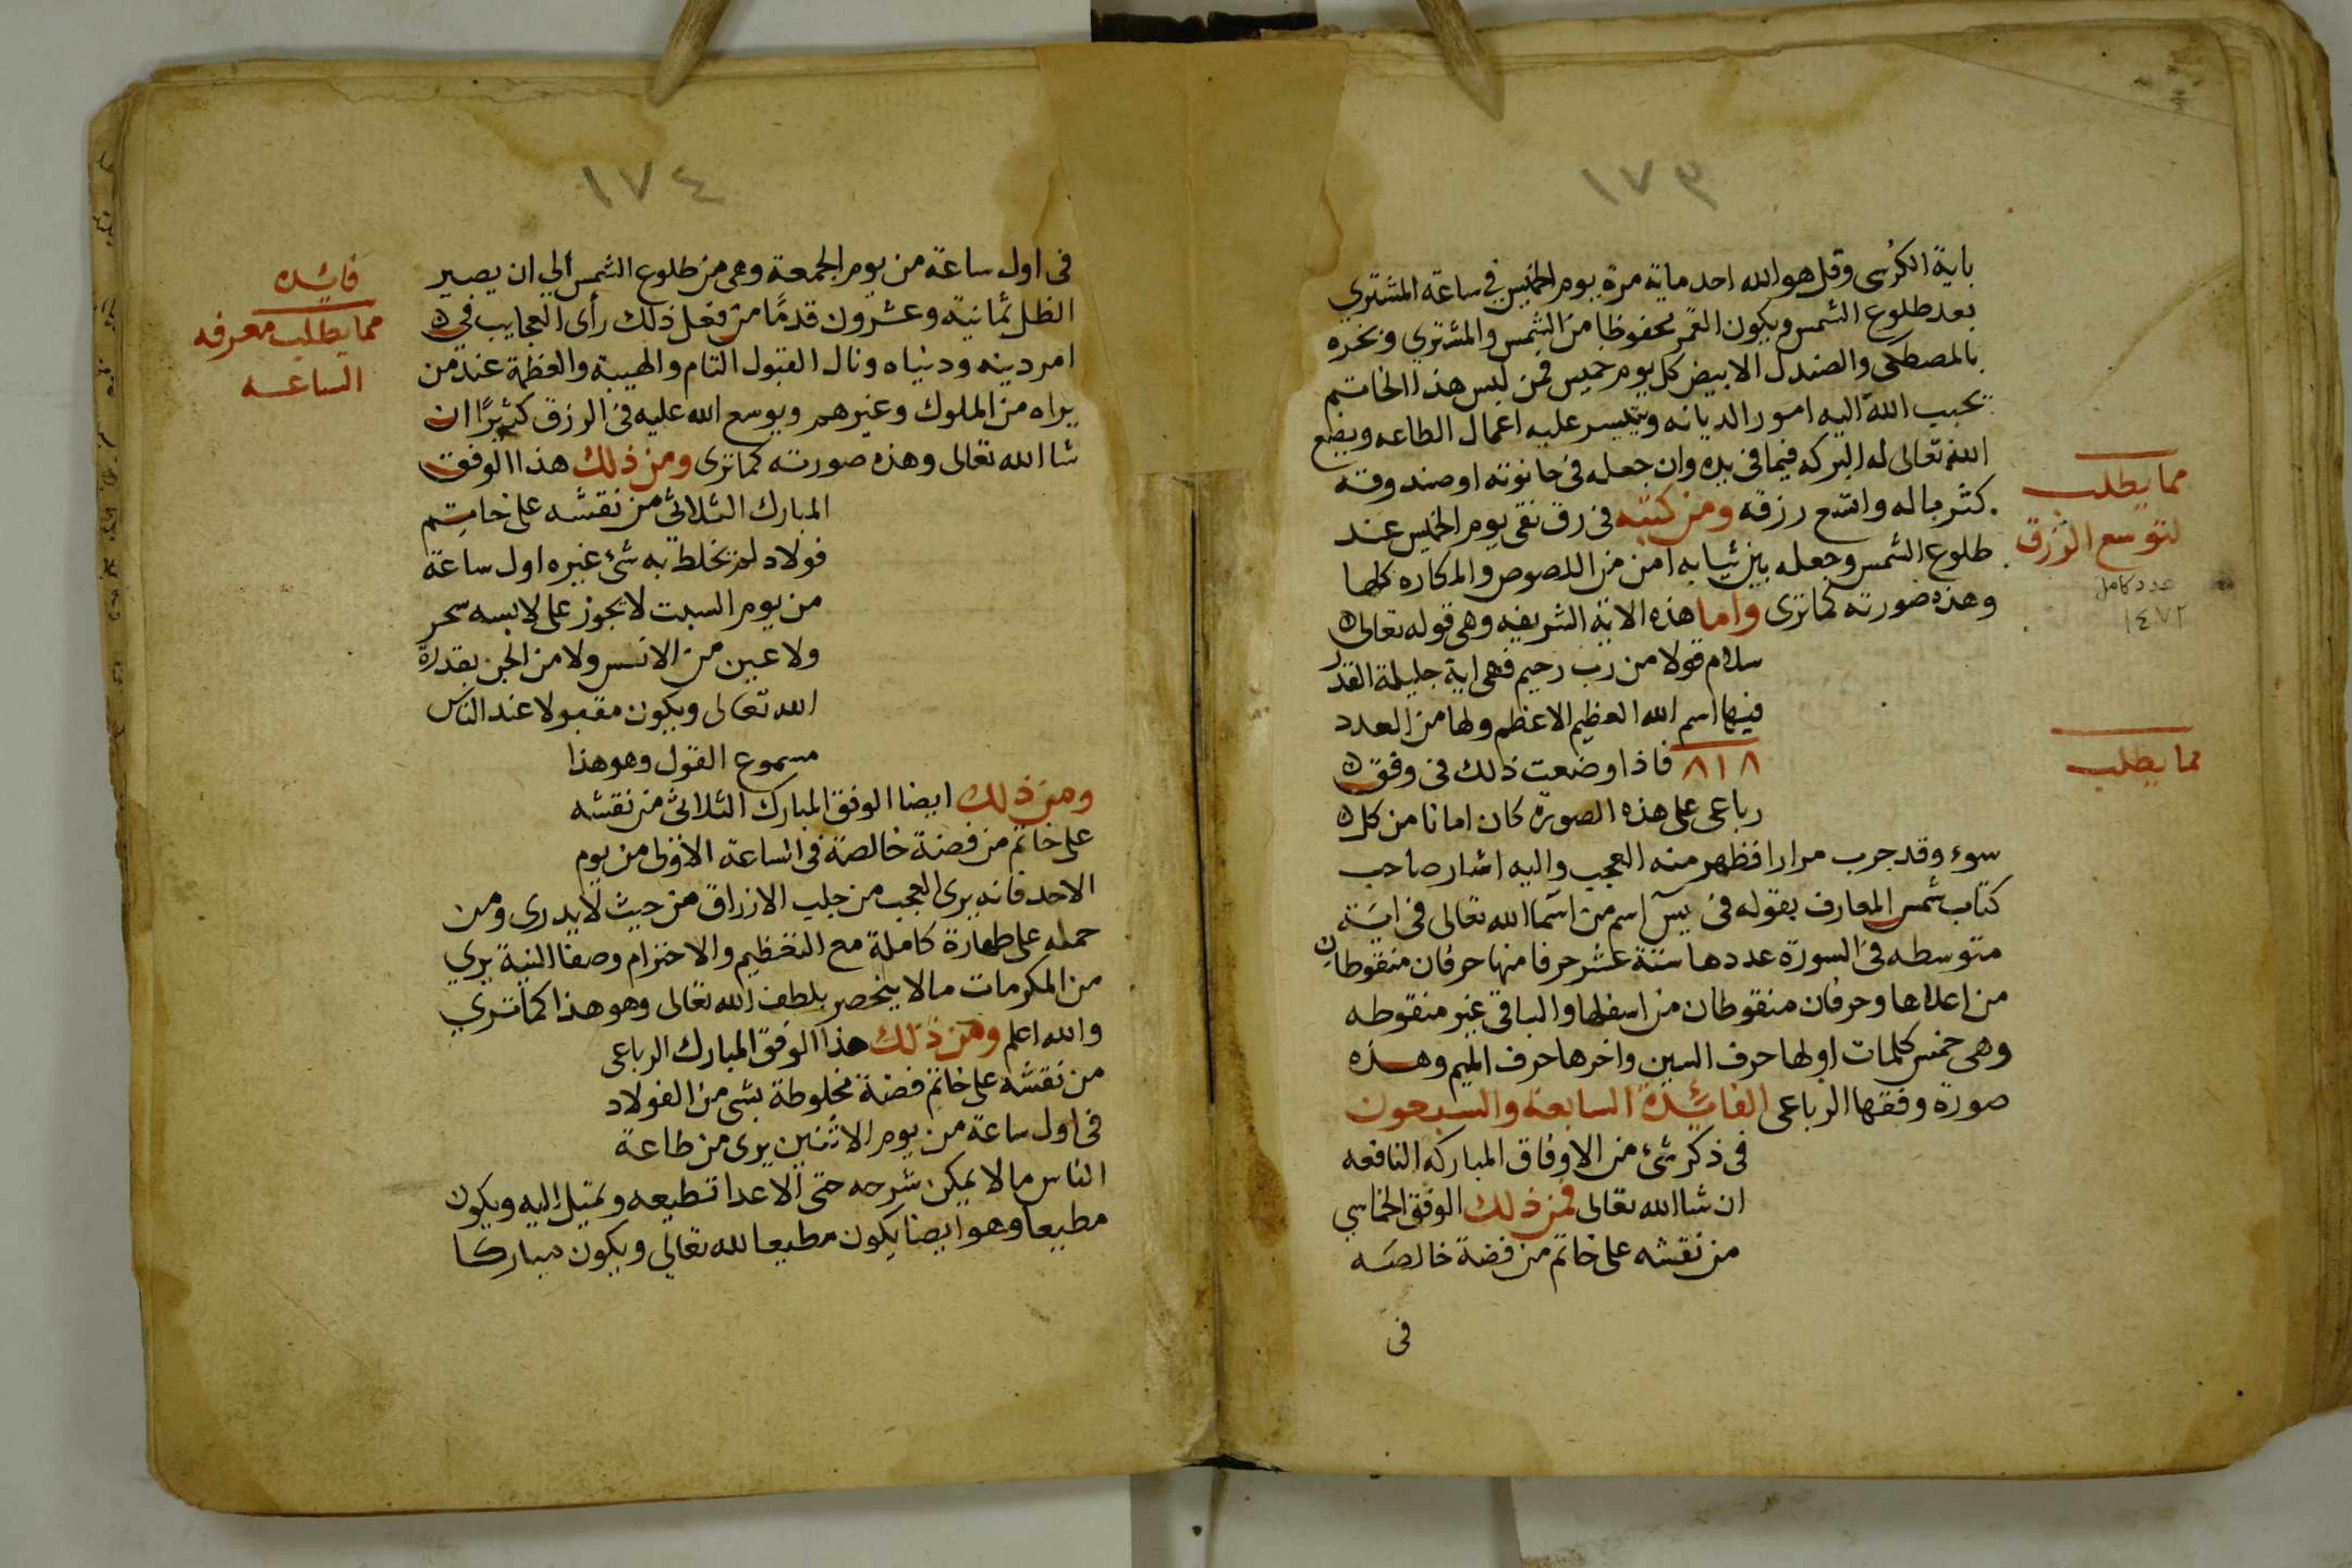 ١٧٣
باية الكرسى وقل هو الله احد ماية مرة يوم الخميس فى ساعة المشترى
بعد طلوع الشمس ويكون القمر محفوظا من الشمس والمشترى وبخره
بالمصطكى والصندل الابيض كل يوم خميس فمن لبس هذا الخاتم
يحبب الله اليه امور الديانه ويتيسر عليه اعمال الطاعه ويضع
الله تعالى له البركه فيما فى يده وان جعله فى حانوته او صندوقه
كثر ماله واتسع رزقه ومن كتبه فى رق نقى يوم الخميس عند
طلوع الشمس وجعله بين ثيابه امن من اللصوص والمكاره كلها
وهذه صورته كما ترى واما هذه الاية الشريفه وهى قوله تعالى
سلام قولا من رب رحيم فهى اية جليلة القدر
فيها اسم الله العظيم الاعظم ولها من العدد
٨١٨ فاذا وضعت ذلك فى وفق
رباعى على هذه الصورة كان امانا من كل
سوء وقد جرب مرارا فظهر منه العجب واليه اشار صاحب
كتاب شمس المعارف بقوله فى يس اسم من اسما الله تعالى فى اية
متوسطه فى السورة عددها ستة عشر حرفا منها حرفان منقوطان
من اعلاها وحرفان منقوطان من اسفلها والباقى غير منقوطه
وهى خمس كلمات اولها حرف السين واخرها حرف الميم وهذه
صورة وفقها الرباعى الفائدة السابعة والسبعون
فى ذكر شئ من الاوفاق المباركه النافعه
ان شا الله تعالى فمن ذلك الوفق الخماسي
من نقشه على خاتم من فضة خالصه
فى
مما يطلب
لتوسع الرزق
عدد كامل
١٤٧٢
مما يطلب
١٧٤
فى اول ساعة من يوم الجمعة وهى من طلوع الشمس الي ان يصير
الظل ثمانية وعشرون قدمًا من فعل ذلك رأى العجايب فى
امر دينه ودنياه ونال القبول التام والهيبة والعظمة عند من
يراه من الملوك وغيرهم ويوسع الله عليه فى الرزق كثيرًا ان
شا الله تعالى وهذه صورته كما ترى ومن ذلك هذا الوفق
المبارك الثلاثى من نقشه على خاتم
فولاد لم يخلط به شئ غيره اول ساعة
من يوم السبت لا يجوز على لابسه سحر
ولا عين من الانس ولا من الجن بقدرة
الله تعالى ويكون مقبولا عند الناس
مسموع القول وهو هذا
ومن ذلك ايضا الوفق المبارك الثلاثى من نقشه
على خاتم من فضة خالصة فى الساعة الاولى من يوم
الاحد فانه يرى العجب من جلب الارزاق من حيث لا يدرى ومن
حمله على طهارة كاملة مع التعظيم والاحترام وصفا النية يرى
من المكرمات مالا ينحصر بلطف الله تعالى وهو هذا كما تري
والله اعلم ومن ذلك هذا الوفق المبارك الرباعى
من نقشه على خاتم فضة مخلوطة بشى من الفولاد
فى اول ساعة من يوم الاثنين يرى من طاعة
الناس مالا يمكن شرحه حتى الاعدا تطيعه وتميل اليه ويكون
مطيعا وهو ايضا يكون مطيعا لله تعالى ويكون مباركا
فائده
مما يطلب معرفه
الساعه